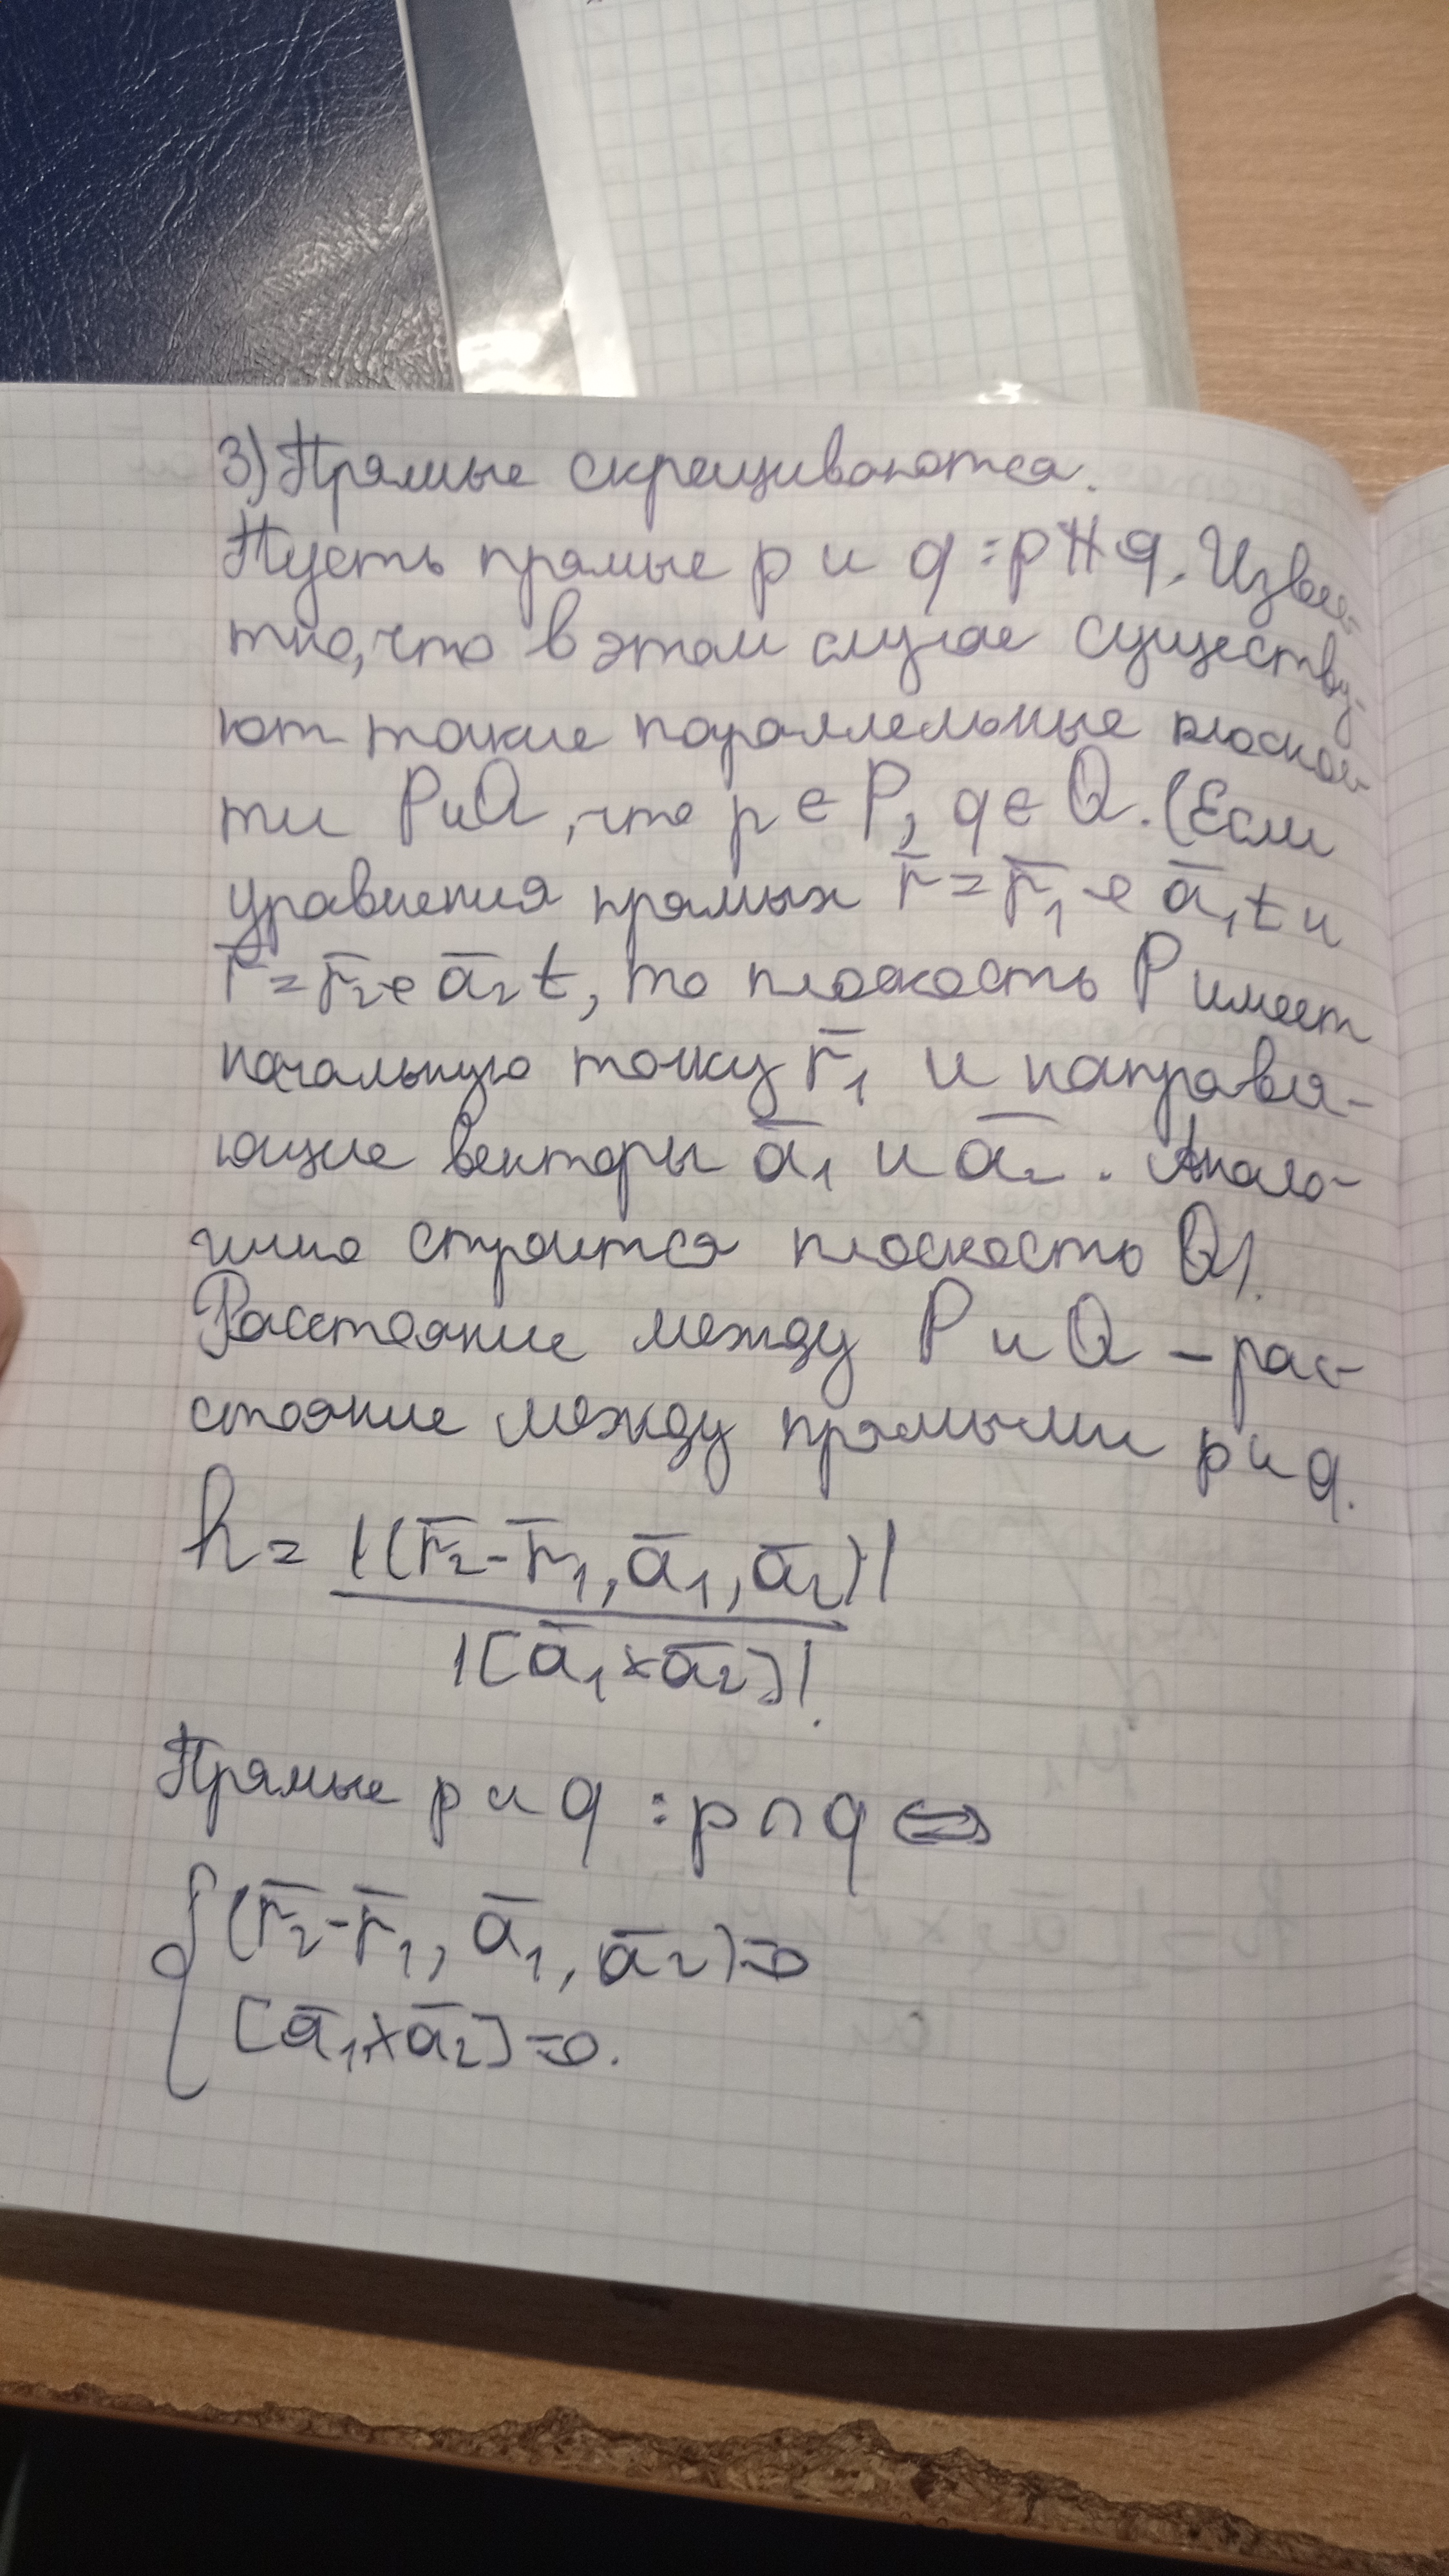 3) Прямые скрещиваются.
Пусть прямые p и q : p ∦ q. Извес-
тно, что в этом случае существу-
ют такие параллельные плоскос-
ти P и Q, что p ∈ P, q ∈ Q. (Если
уравнения прямых r̅ = r̅₁ + a̅₁t и
r̅ = r̅₂ + a̅₂t, то плоскость P имеет
начальную точку r̅₁ и направля-
ющие векторы a̅₁ и a̅₂. Анало-
гично строится плоскость Q).
Расстояние между P и Q – рас-
стояние между прямыми p и q.
h = |(r̅₂ - r̅₁, a̅₁, a̅₂)|
|[a̅₁ × a̅₂]|.
Прямые p и q : p ∩ q ⇔
{ (r̅₂ - r̅₁, a̅₁, a̅₂) = 0
[a̅₁ × a̅₂] = 0.